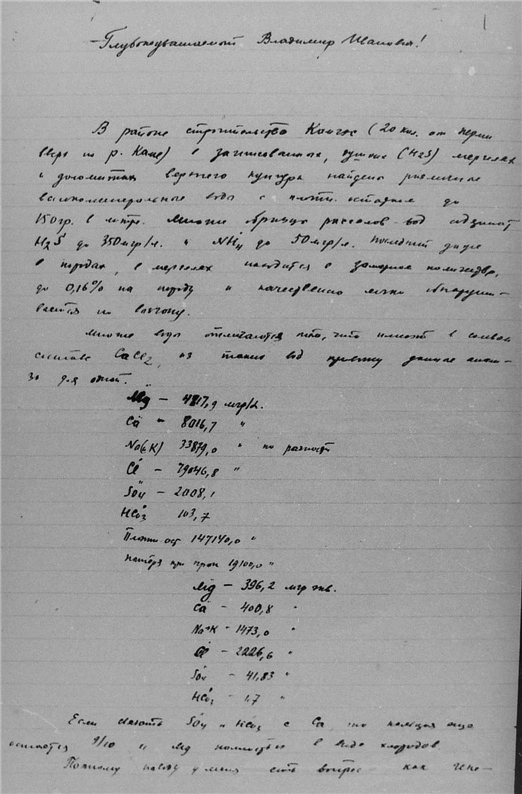 Глубокоуважаемый Владимир Иванович!
В районе строительства Камгэс (20 кил. от Перми
вверх по р. Каме) в загипсованных, (H2S) мергелях
и доломитах верхнего кунгура найдены различные
воды с плотн. остатком до
150 гр. в литре. Многие образцы рассолов вод содержат
H2S до 350 мгр/л. и NH4 до 50 мгр/л. Последний
в породах, в мергелях находится в количестве,
до 0,16% на породу и качественно легко обнаружи-
вается по
Многие воды отличаются тем, что имеют в солевом
составе CaCl2, из таких вод данные анали-
за для одной.
Mg - 4817,9 мгр/л.
Ca - 8016,7 "
Na(+K) 33879,0 " по разности
Cl - 79046,8 "
SO4 - 2008,1
HCO3 103,7
Плотн ост 147140,0 "
при прок 19100,0 "
Mg - 396,2 мгр экв.
Ca - 400,8 "
Na+K - 1473,0 "
Cl - 2226,6 "
SO4 - 41,83 "
HCO3 - 1,7 "
Если связать SO4 и HCO3 с Ca, то кальция еще
остается 9/10 и Mg полностью в виде хлоридов.
Поэтому поводу у меня есть вопрос как